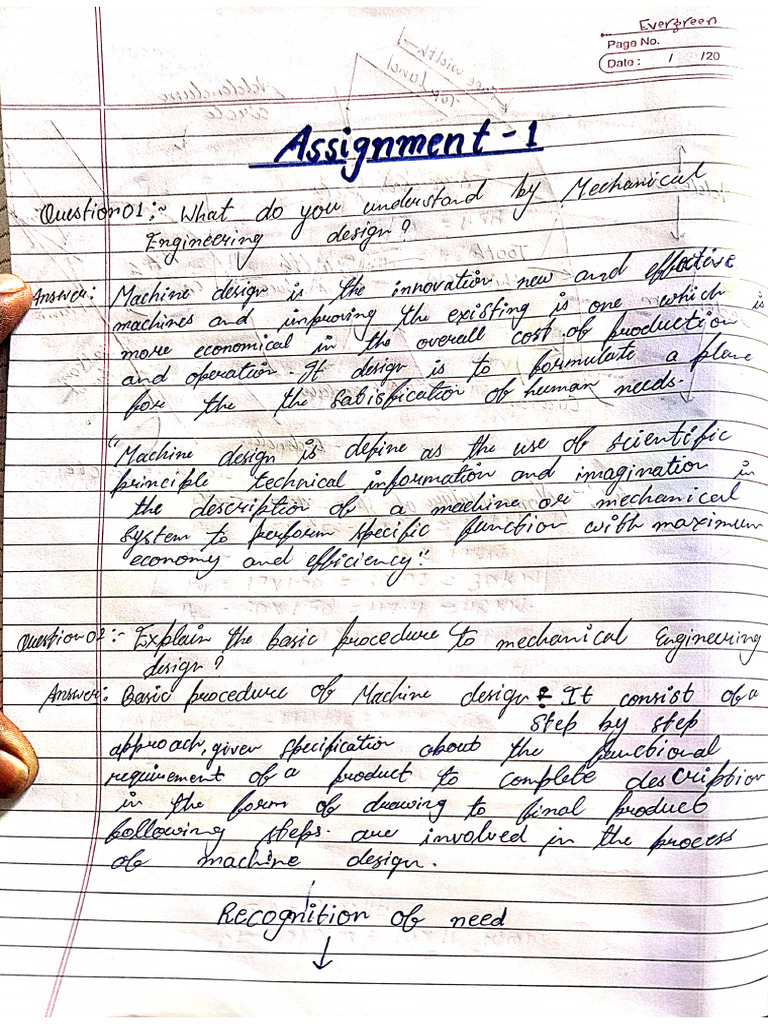 Evergreen
Page No.
Date : / /20
Assignment - 1
Question 01:- What do you understand by Mechanical
Engineering design?
Answer: Machine design is the innovation new and effective
machines and improving the existing is one which is
more economical in the overall cost of production
and operation. If design is to formulate a plane
for the the satisfication of human needs.
"Machine design is define as the use of scientific
principle technical information and imagination in
the description of a machine or mechanical
system to perform specific function with maximum
economy and efficiency."
Question 02:- Explain the basic procedure to mechanical Engineering
design?
Answer: Basic procedure of Machine design:- It consist of a
step by step
approach, given specification about the functional
requirement of a product to complete description
in the form of drawing to final product
following steps. are involved in the process
of machine design.
Recognition of need
↓